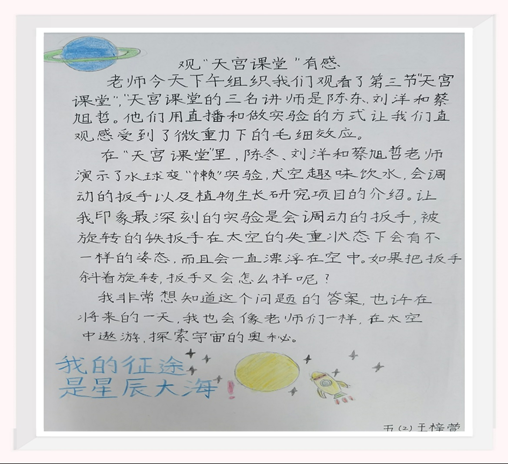 观“天宫课堂”有感
老师今天下午组织我们观看了第三节“天宫
课堂”,“天宫课堂的三名讲师是陈东、刘洋和蔡
旭哲。他们用直播和做实验的方式让我们直
观感受到了微重力下的毛细效应。
在“天宫课堂”里,陈冬、刘洋和蔡旭哲老师
演示了水球变“懒”实验,太空趣味饮水,会调
动的扳手以及植物生长研究项目的介绍。让
我印象最深刻的实验是会调动的扳手,被
旋转的铁扳手在太空的失重状态下会有不
一样的姿态,而且会一直漂浮在空中。如果把扳手
斜着旋转,扳手又会怎么样呢?
我非常想知道这个问题的答案,也许在
将来的一天,我也会像老师们一样,在太空
中遨游,探索宇宙的奥秘。
我的征途
是星辰大海!
五(2)王梓萱